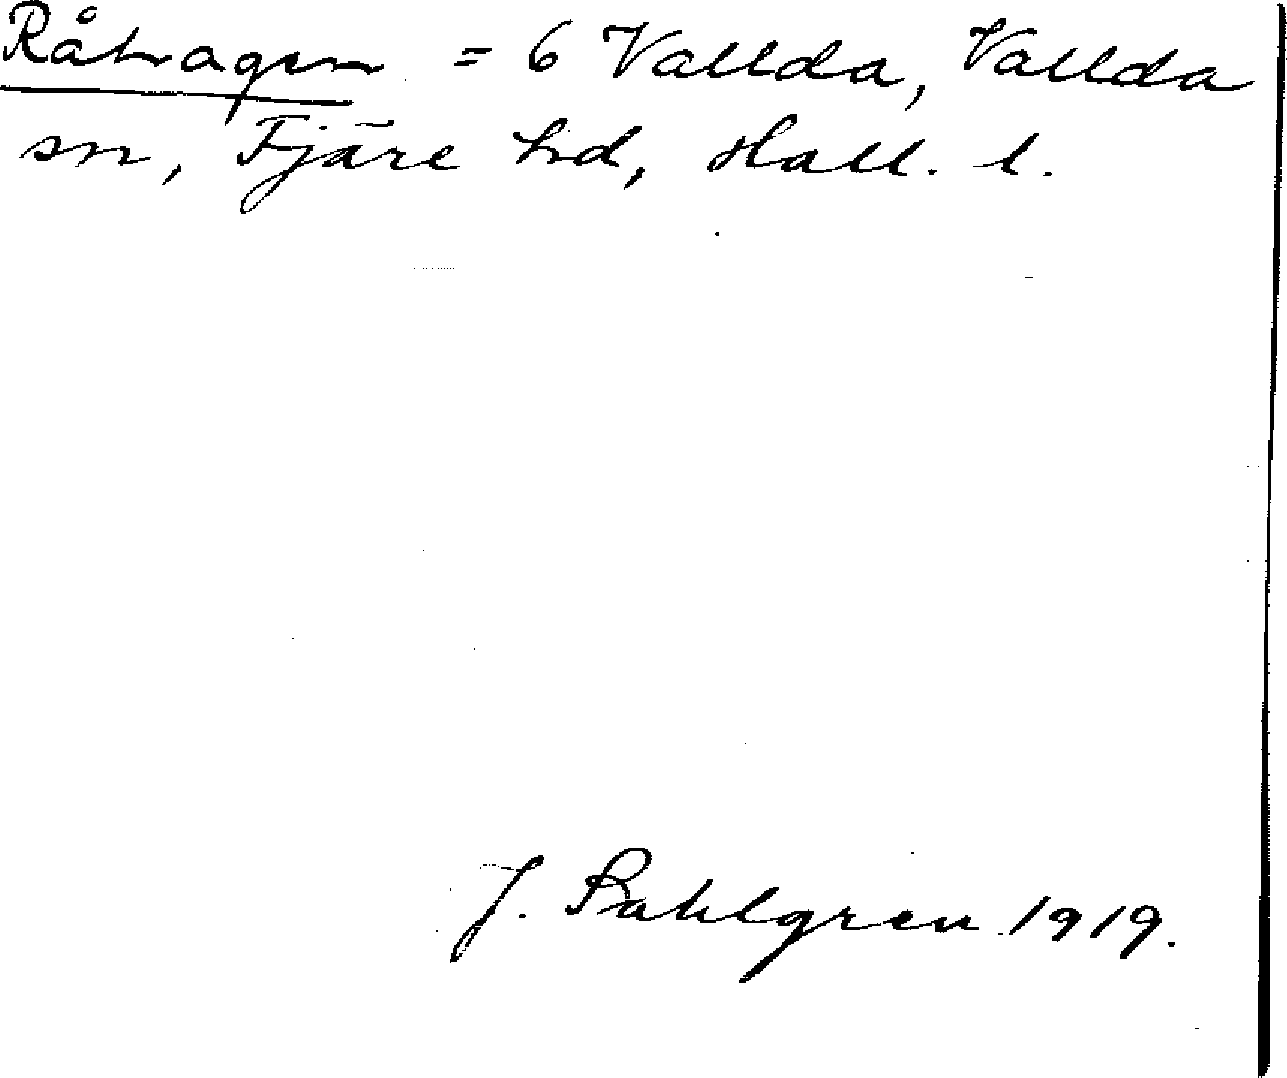 Råhagen = 6 Vallda, Vallda
sn, Fjäre hd, Hall. l.
J. Sahlgren 1919.